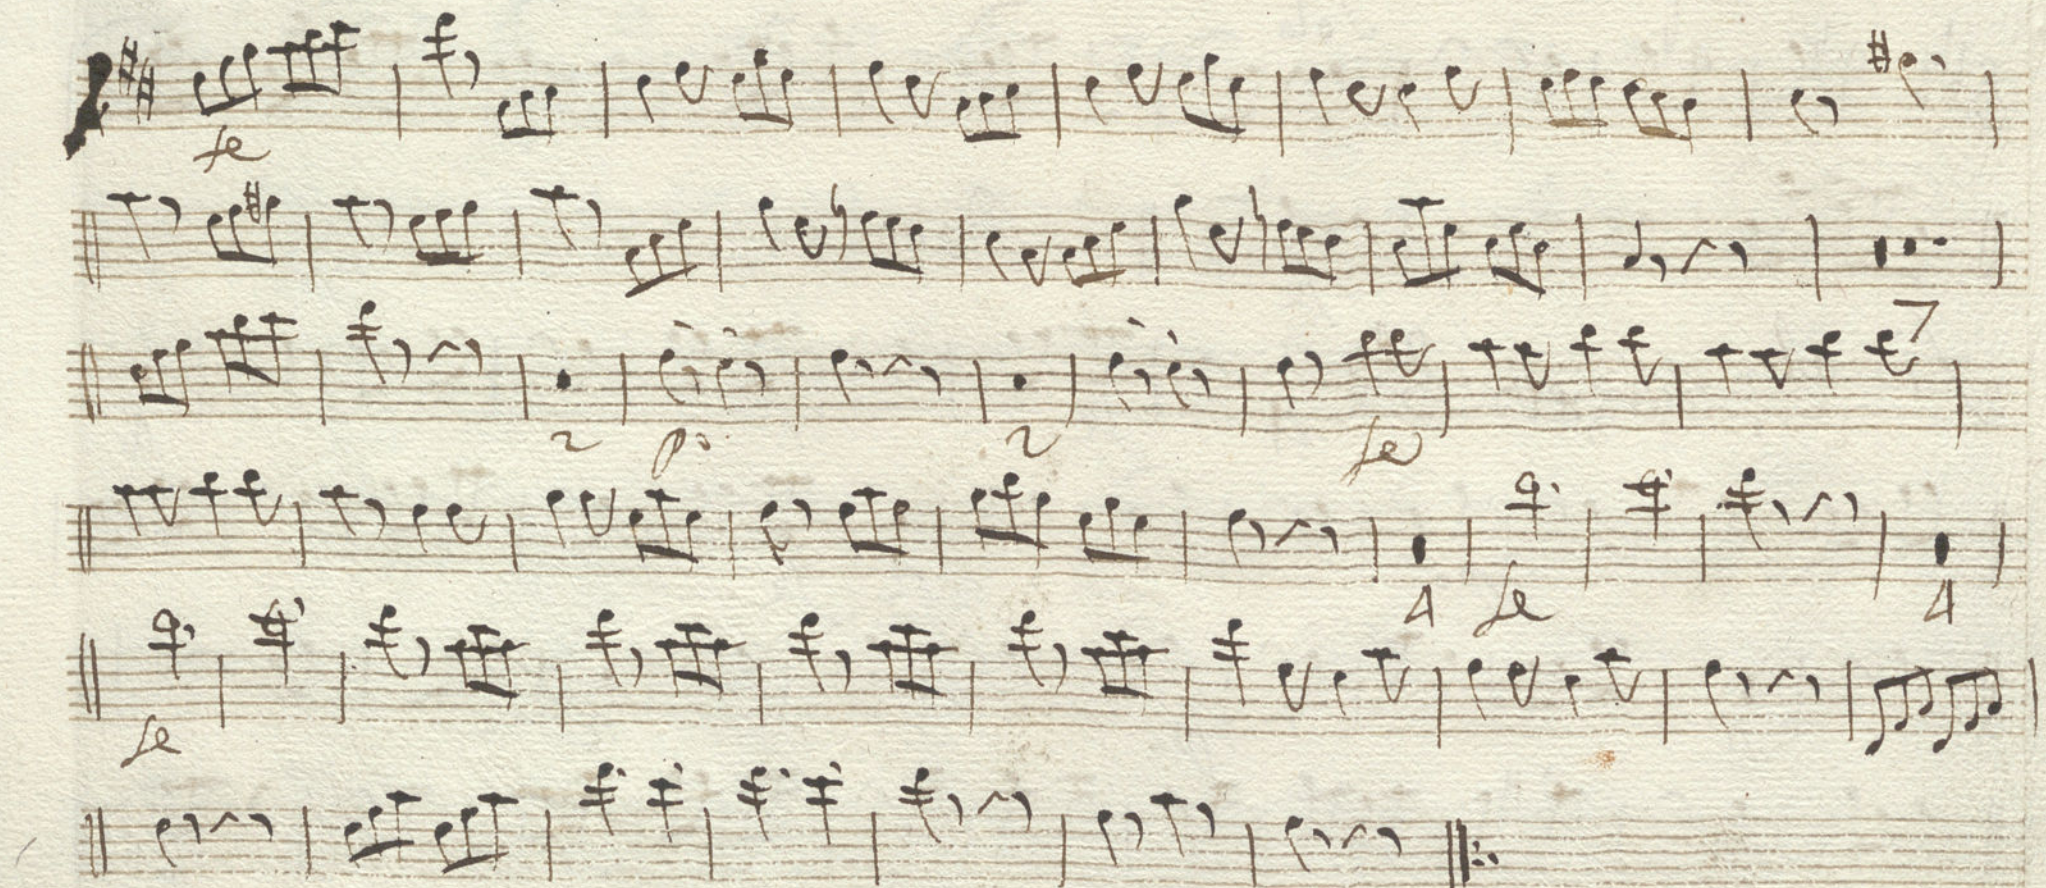 fe
7
2 po 2 fe
4 fe 4
fe